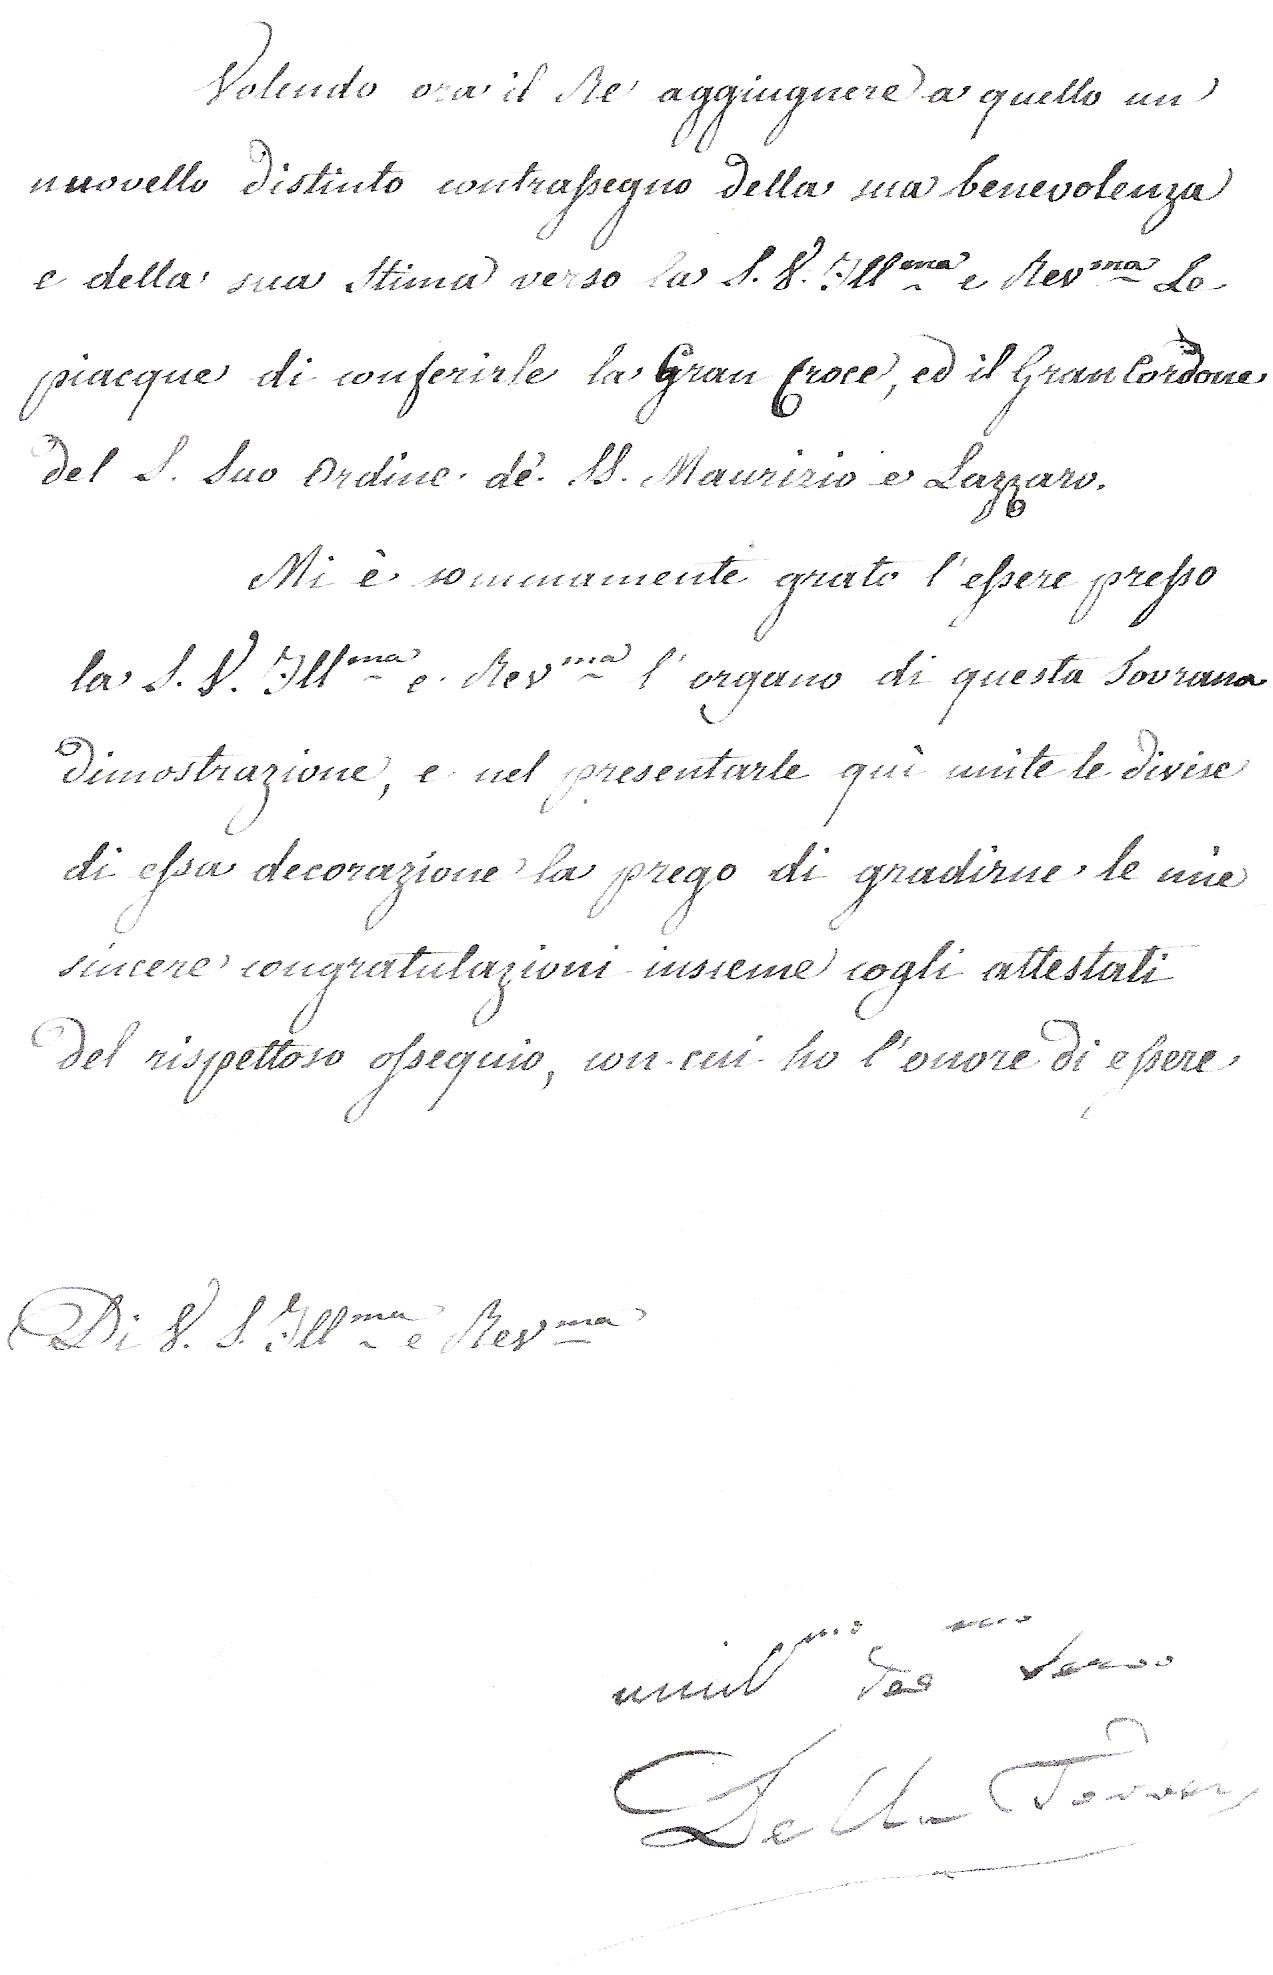 Volendo ora il Re aggiugnere a quello un
nuovello distinto contrassegno della sua benevolenza
e della sua stima verso la S. V. Ill.ma e Rev.ma Le
piacque di conferirle la Gran Croce, ed il Gran Cordone
del S. Suo Ordine de' SS. Maurizio e Lazzaro.
Mi è sommamente grato l'essere presso
la S. V. Ill.ma e Rev.ma l'organo di questa Sovrana
dimostrazione, e nel presentarle quì unite le divise
di essa decorazione la prego di gradirne le mie
sincere congratulazioni insieme cogli attestati
del rispettoso ossequio, con cui ho l'onore di essere
Di V. S. Ill.ma e Rev.ma
umil.mo servo
Della Torre